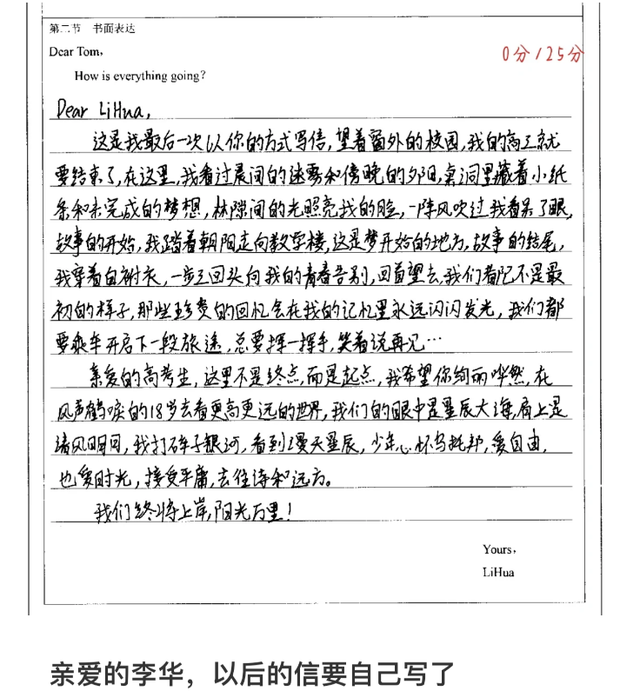 第二节 书面表达
Dear Tom,
0分/25分
How is everything going?
Dear LiHua,
这是我最后一次以你的方式写信,望着窗外的校园,我的高三就
要结束了,在这里,我看过晨间的迷雾和傍晚的夕阳,桌洞里藏着小纸
条和未完成的梦想,林隙间的光照亮我的脸,一阵风吹过我看呆了眼,
故事的开始,我踏着朝阳走向教学楼,这是梦开始的地方,故事的结尾,
我穿着白衬衣,一步三回头向我的青春告别,回首望去,我们都已不是最
初的样子,那些珍贵的回忆会在我的记忆里永远闪闪发光,我们都
要乘车开启下一段旅途,总要挥一挥手,笑着说再见…
亲爱的高考生,这里不是终点,而是起点,我希望你绚丽哗然,在
风声鹤唳的18岁去看更高更远的世界,我们的眼中是星辰大海,肩上是
清风明月,我打碎了银河,看到漫天星辰,少年心怀乌托邦,爱自由,
也爱时光,接受平庸,去往诗和远方。
我们终将上岸,阳光万里!
Yours,
LiHua
亲爱的李华,以后的信要自己写了